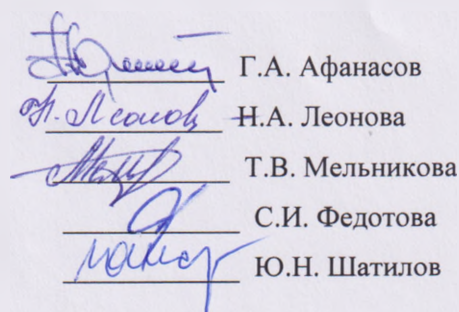 Г.А. Афанасов
Н. Леонов Н.А. Леонова
Т.В. Мельникова
С.И. Федотова
Ю.Н. Шатилов